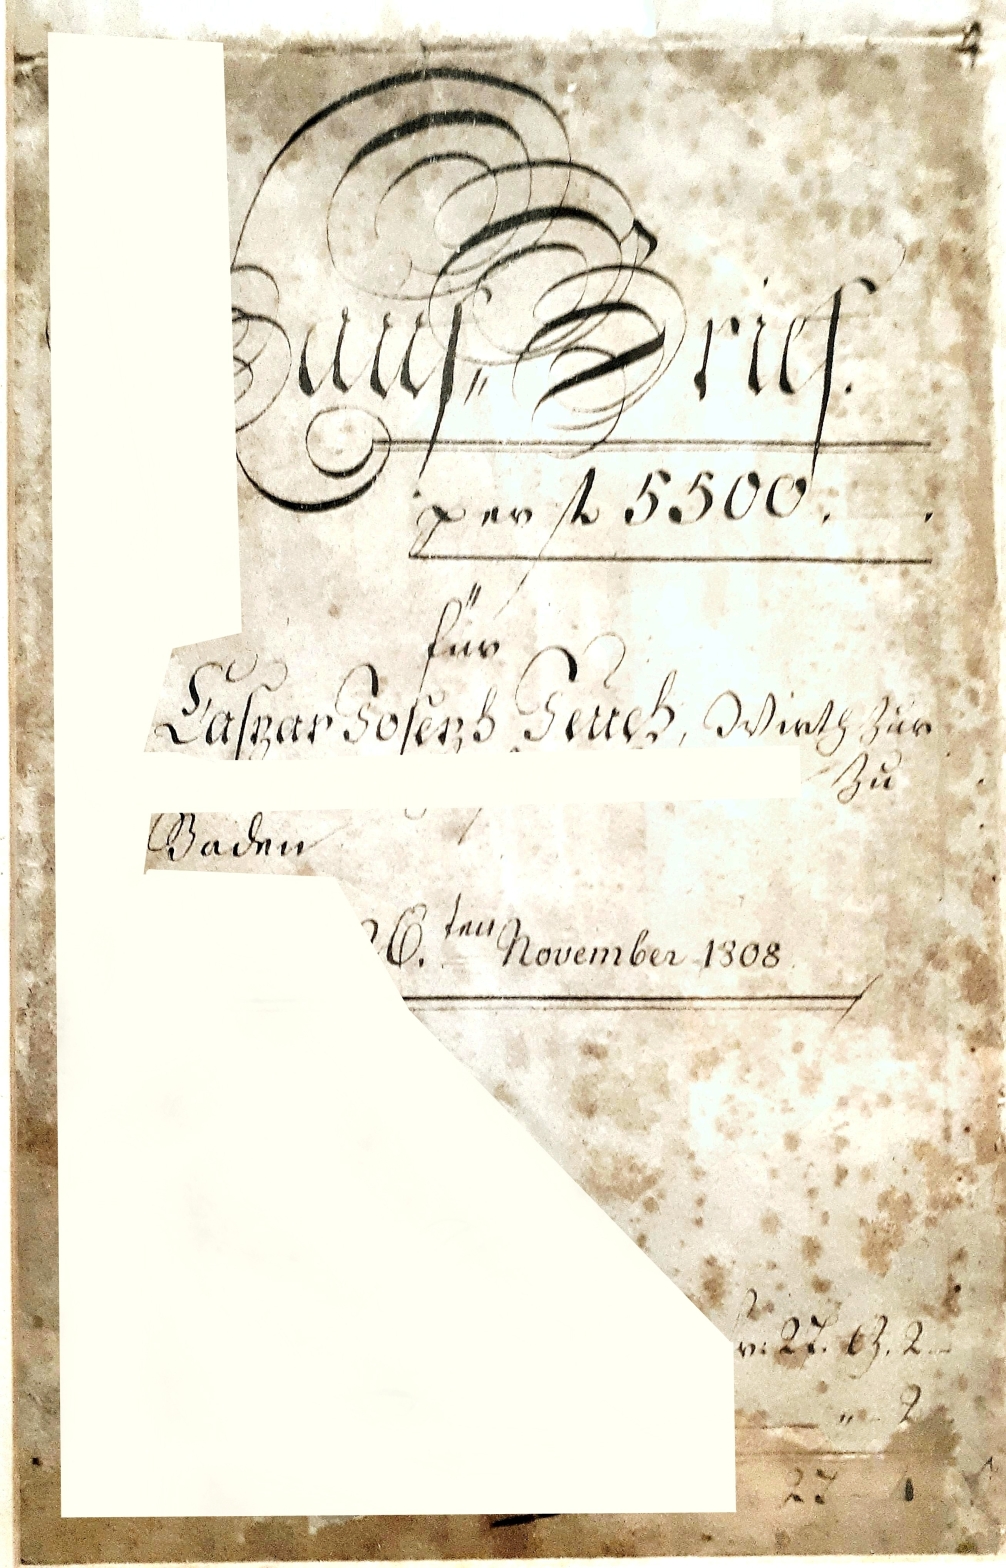 Kauf„ Brief.
per fl 5500.
für
Caspar Joseph Jeuch, Wirth zur
zu
Baden
26.ten November 1808
27. B. 2
„ 2
27